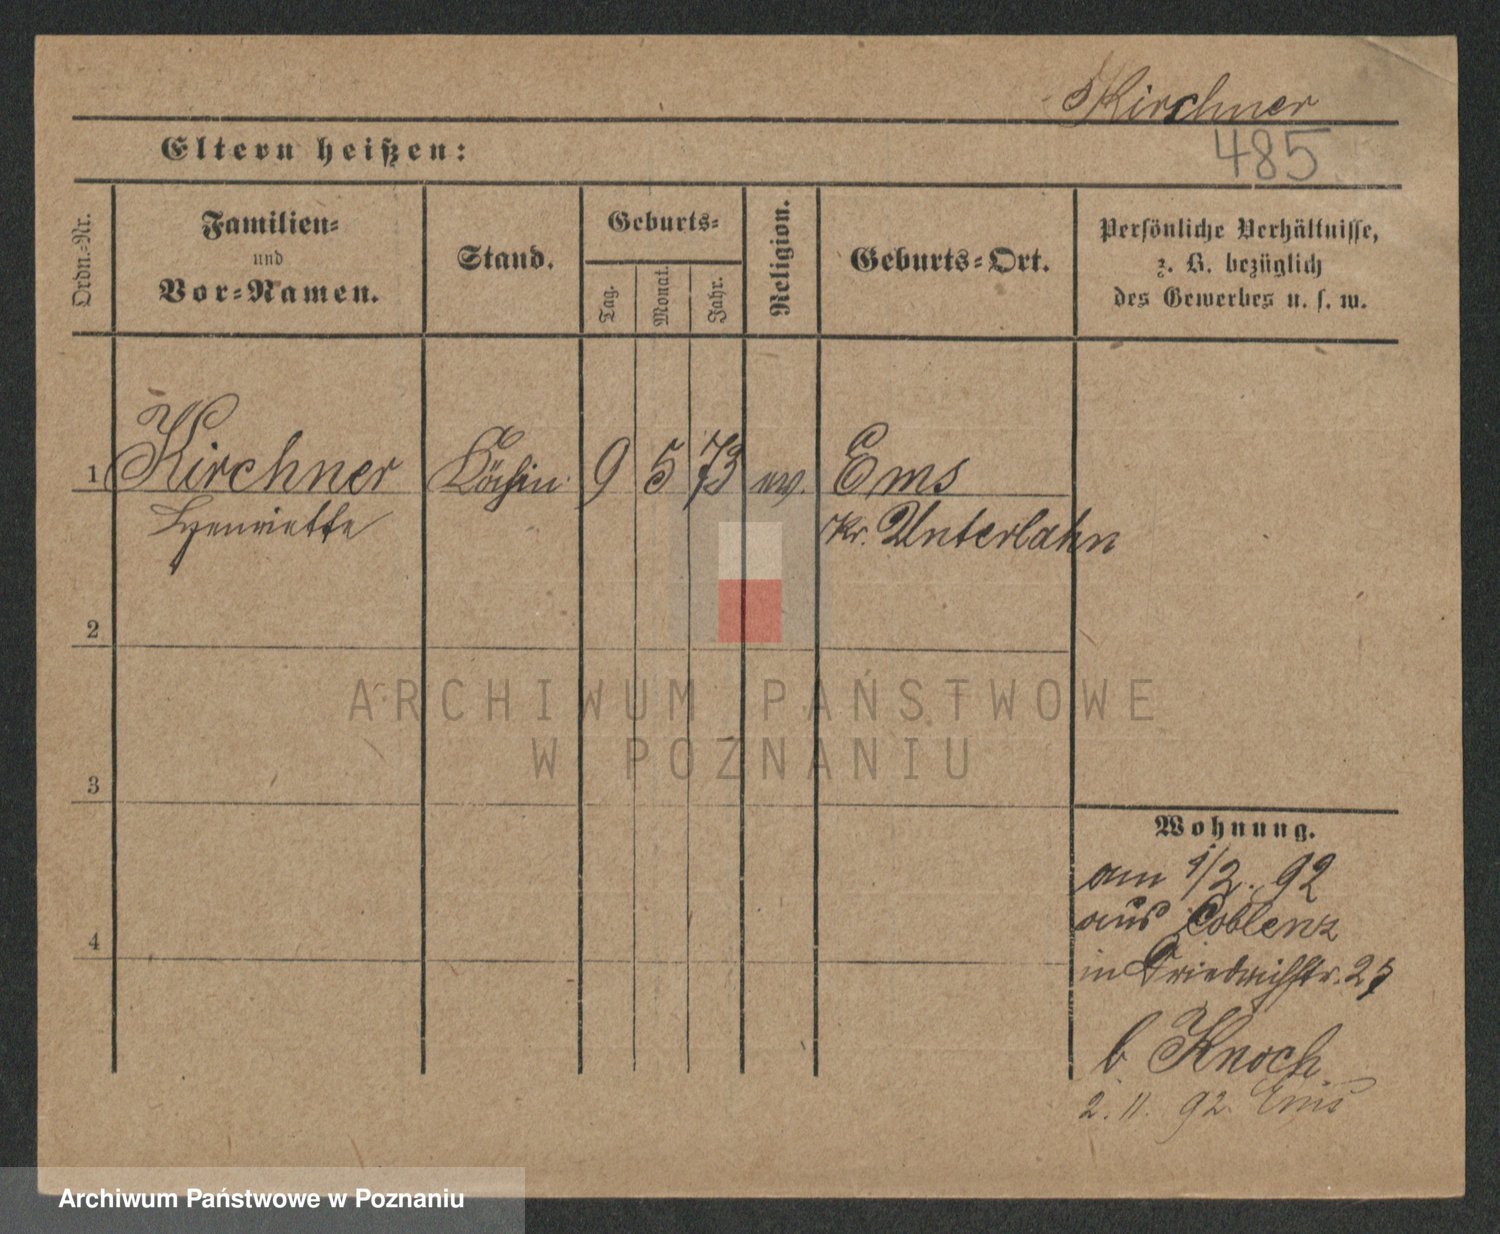 Kirchner
485
Eltern heißen:
Ordn.-Nr.
Familien-
und
Vor-Namen.
Stand.
Geburts-
Tag.
Monat.
Jahr.
Religion.
Geburts-Ort.
Persönliche Verhältnisse,
z. B. bezüglich
des Gewerbes u. s. w.
1 Kirchner Köchin 9 5 73 ev. Ems
Henriette Kr. Unterlahn
2
ARCHIWUM PAŃSTWOWE
W POZNANIU
3
Wohnung.
am 1/2. 92
aus Coblenz
4
in Friedrichstr. 25
b Knoch
2. 11. 92. Ems
Archiwum Państwowe w Poznaniu